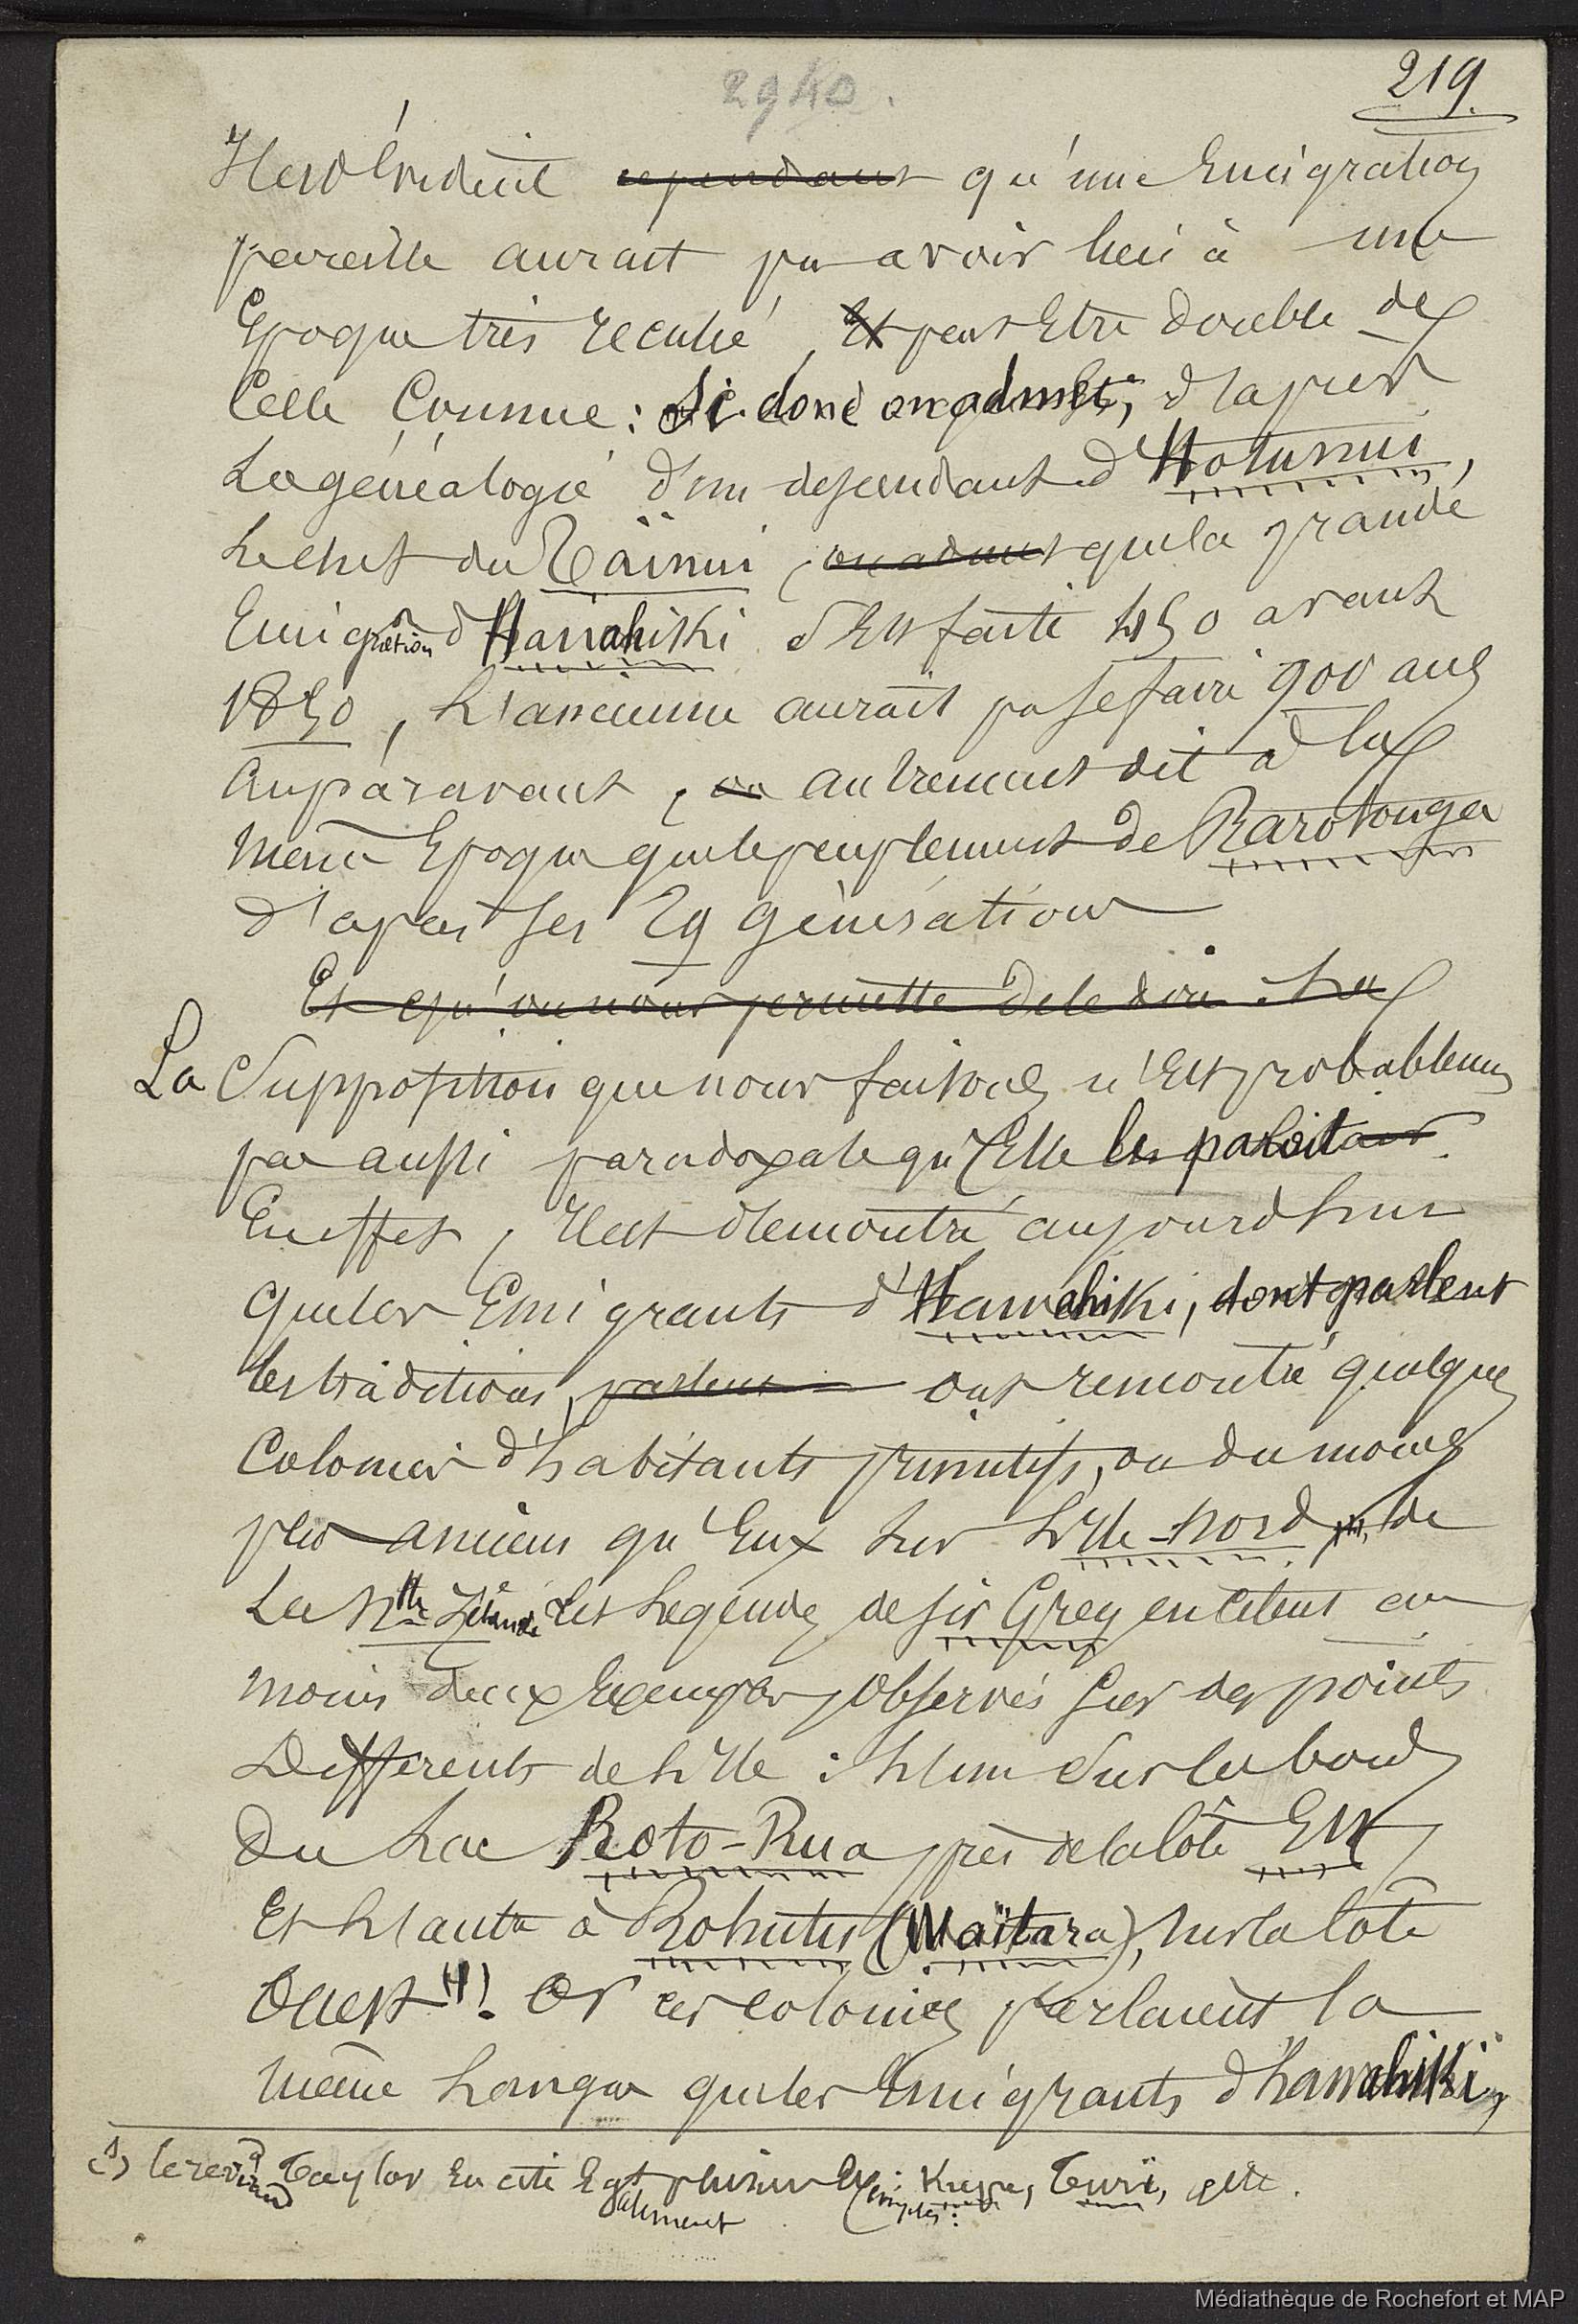 2940.
219.
Il est évident cependant qu'une Emigration
pareille aurait pu avoir lieu à une
Epoque très reculée, Et peut Etre double de
Celle Connue : Si donc on admet, d'après
La généalogie d'un descendant d'Hotunui,
Le chef du Taïnui, on admet que la grande
Emigration d'Hawahiki s'Est faite 450 avant
1850, L'ancienne aurait pu se faire 900 ans
auparavant, ou autrement dit à la
même Epoque que le peuplement de Rarotonga
d'après ses 29 générations
Et qu'on nous permette de le dire :
La Supposition que nous faisons n'Est probablement
pas aussi paradoxale qu'Elle le paroit
En effet, Il est démontré aujourd'hui
que les Emigrants d'Hawahiki, dont parlent
les traditions, parlent ont rencontré quelques
Colonies d'habitants primitifs, ou du moins
plus anciens qu'Eux sur L'Ile-Nord de
La Nlle Zélande Les Légendes de Sir Grey en citent au
moins deux Exemples observés sur des points
Différents de L'Ile : L'un Sur les bords
Du Lac Roto-Rua près de la Côte Est
Et L'autre à Rohutu (Waïtara), sur la Côte
Ouest (1)! Or ces colonies parlaient la
même Langue que les Emigrants d'hawahiki,
(1) le révérend Taylor En cite Egalement plusieurs Exemples : Kupe, Turi, etc.